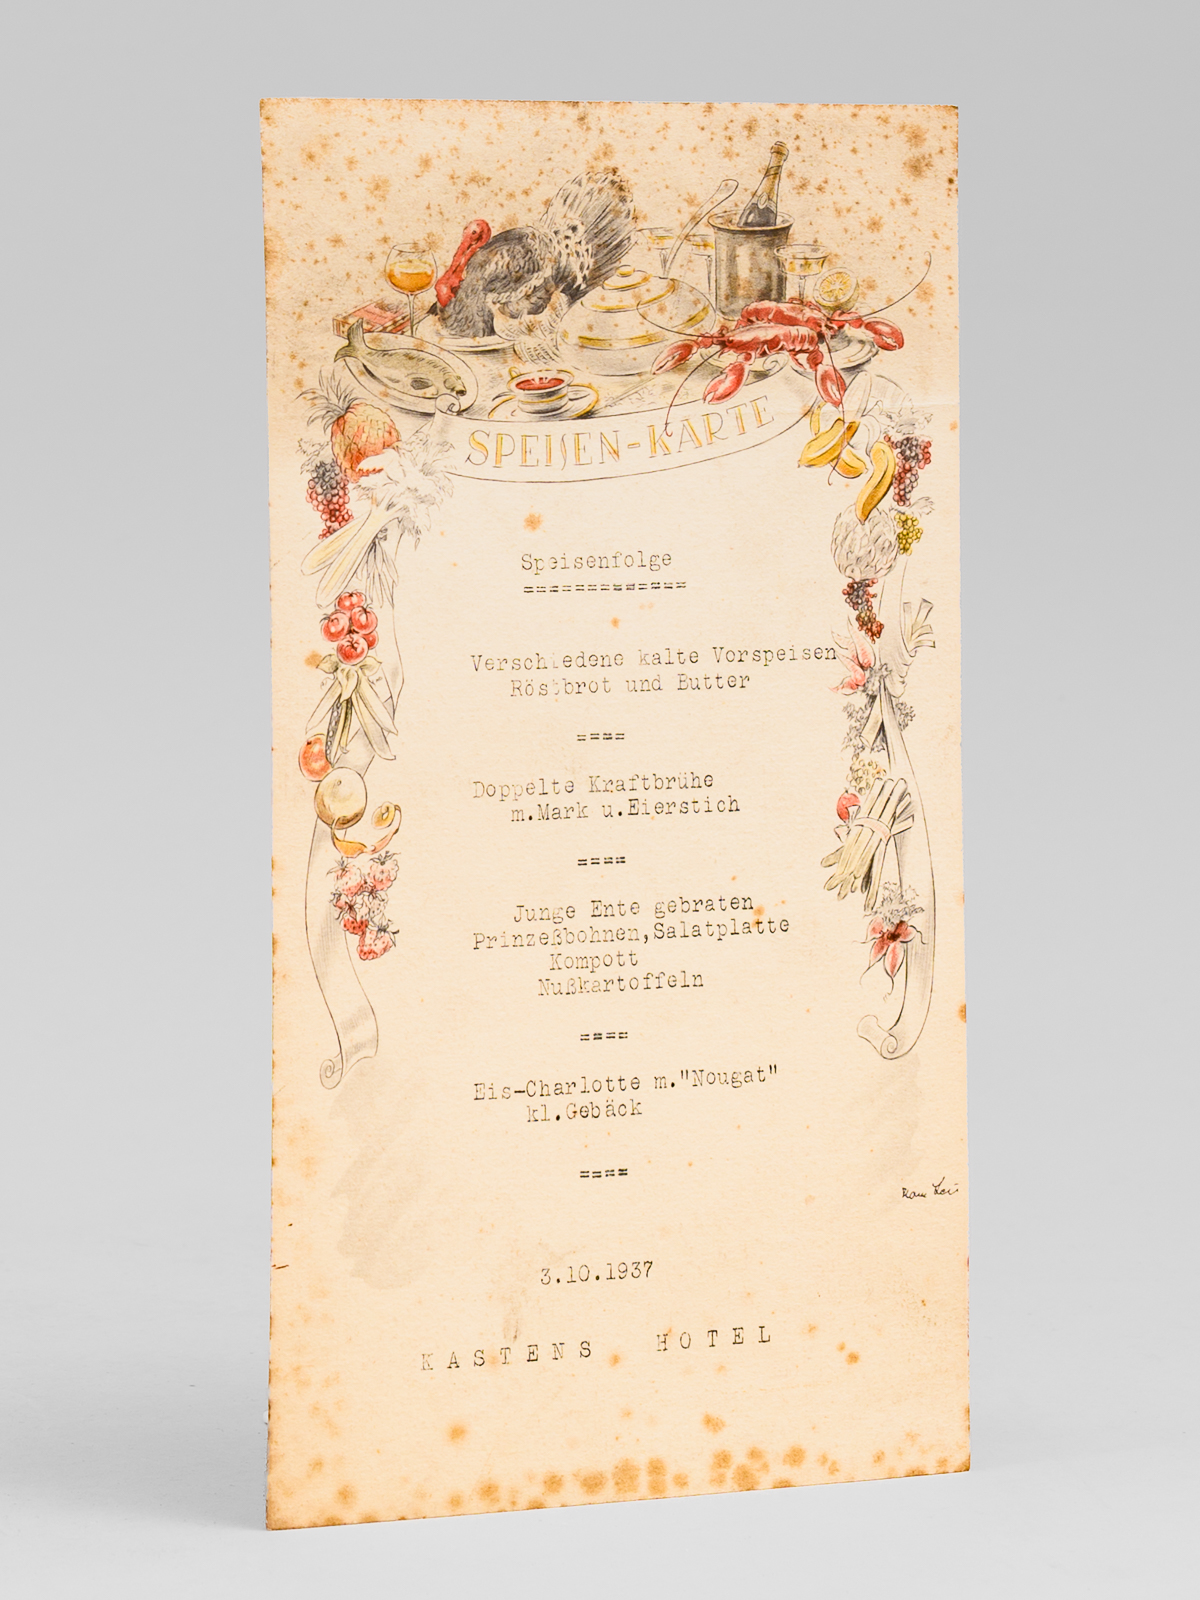 SPEISEN-KARTE
Speisenfolge
=============
Verschiedene kalte Vorspeisen
Röstbrot und Butter
====
Doppelte Kraftbrühe
m.Mark u.Eierstich
====
Junge Ente gebraten
Prinzeßbohnen,Salatplatte
Kompott
Nußkartoffeln
====
Eis-Charlotte m."Nougat"
kl.Gebäck
====
3.10.1937
KASTENS HOTEL